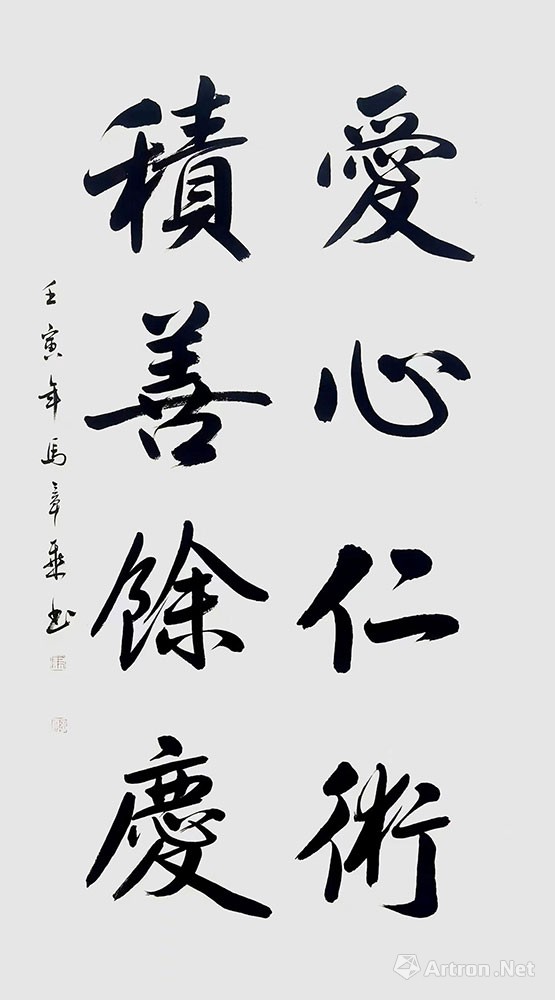 愛心仁術
積善餘慶
壬寅年馬章乘书
Artron.Net